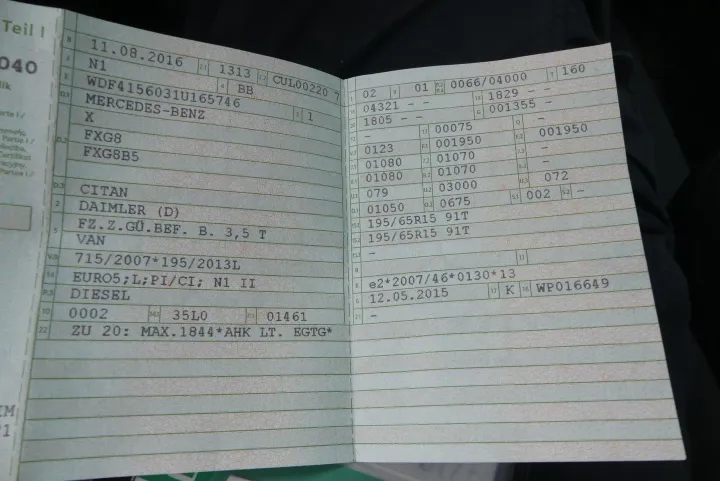 Teil I
040
11.08.2016 1313 CUL00220 *
N1 BB
WDF4156031U165746
MERCEDES-BENZ 1
X
FXG8
FXG8B5
CITAN
DAIMLER (D)
FZ.Z.GÜ.BEF. B. 3,5 T
VAN
715/2007*195/2013L
EURO5;L;PI/CI; N1 II
DIESEL
0002 35L0 01461
ZU 20: MAX.1844*AHK LT. EGTG*
02 01 0066/04000 160
04321 - - 1829 - -
1805 - - 001355 - -
- 00075 -
0123 001950 001950
01080 01070 -
01080 01070 -
079 03000 072
01050 0675 002 -
195/65R15 91T
195/65R15 91T
-
e2*2007/46*0130*13
12.05.2015 K WP016649
-